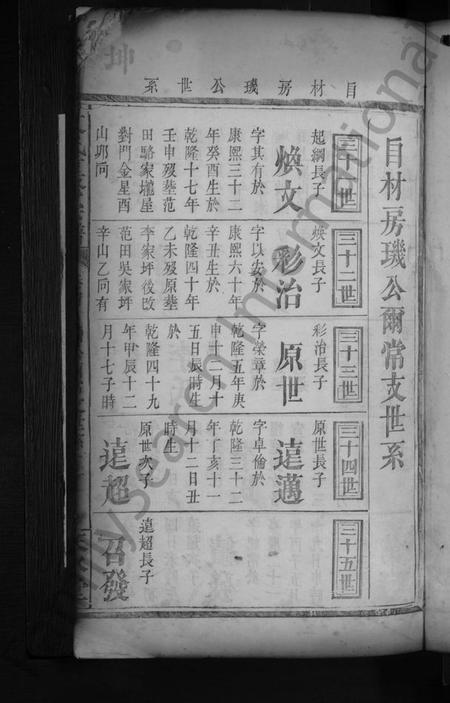 坤
目材房璣公世系
目材房璣公爾常支世系
三十一世
起綱長子
煥文
字其有於
康熙三十二
年癸酉生於
乾隆十七年
壬申歿塟范
田駱家壠屋
對門金星酉
山卯向
三十二世
煥文長子
彩治
字以安於
康熙六十年
辛丑生於
乾隆四十年
乙未歿原塟
李家坪後改
范田吳家坪
辛山乙向有
三十三世
彩治長子
原世
字榮章於
乾隆五年庚
申十二月十
五日辰時生
於
乾隆四十九
年甲辰十二
月十七子時
三十四世
原世長子
遠邁
字卓倫於
乾隆三十二
年丁亥十一
月十二日丑
時生
原世次子
遠超
三十五世
遠超長子
召發
FamilySearch International